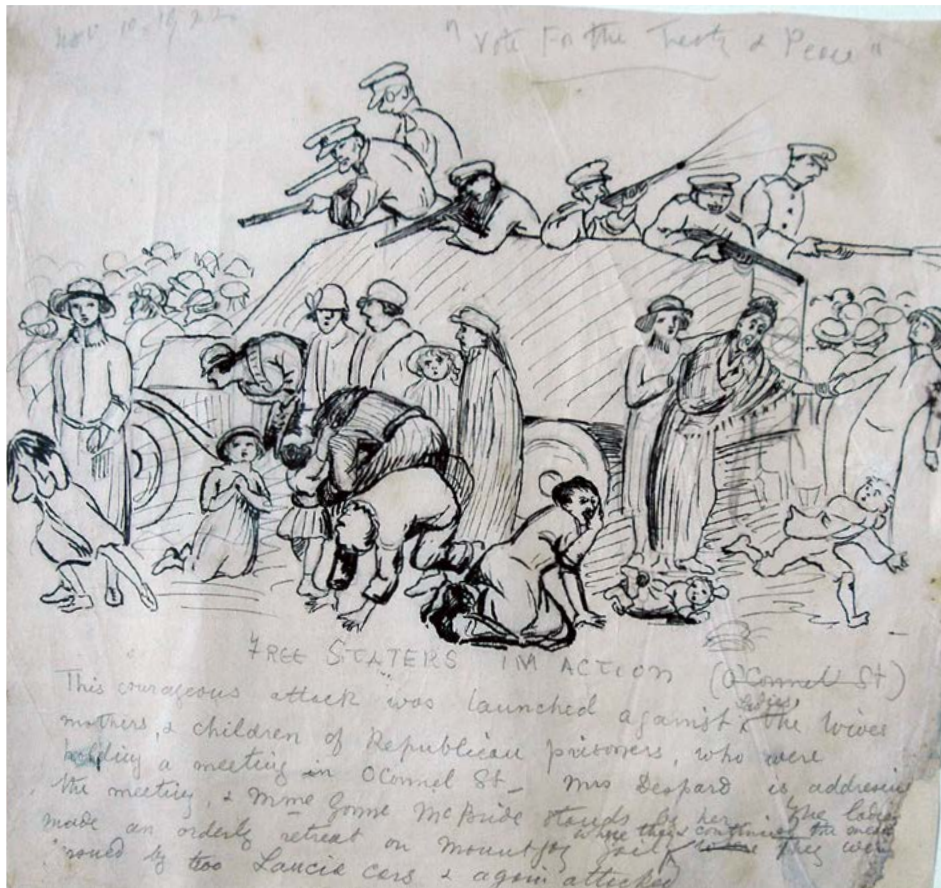 Nov 10-1922
"Vote For the Treaty & Peace"
FREE STATERS IN ACTION (O'Connel St)
This courageous attack was launched against the wives
ladies,
mothers, & children of Republican prisoners, who were
holding a meeting in OConnel St – Mrs Despard is addressing
the meeting, & Mme Gonne McBride stands by her. The ladies
made an orderly retreat on Mountjoy jail where they
where they continued the
by two Lancia cars & again attacked